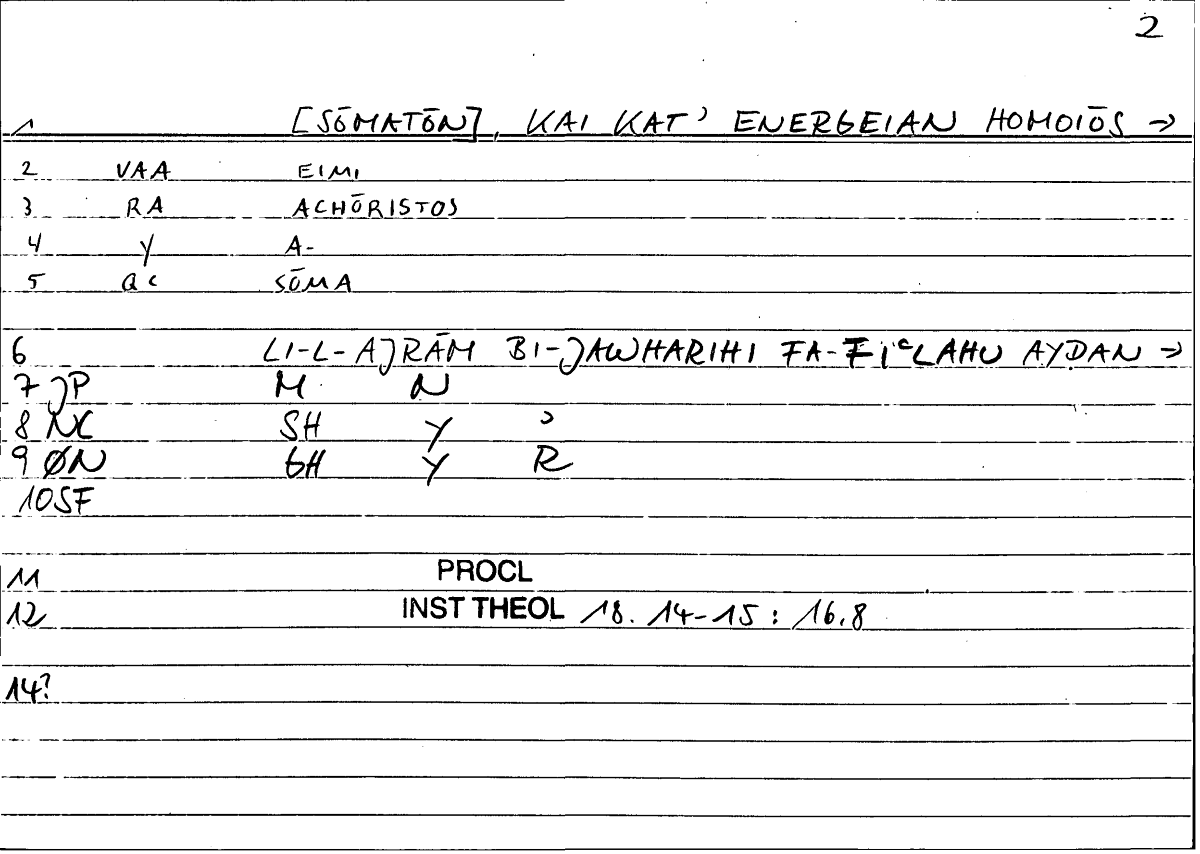 2
1 [SŌMATŌN], KAI KAT' ENERGEIAN HOMOIŌS →
2 VAA EIMI
3 RA ACHŌRISTOS
4 Y A-
5 QC SŌMA
6 LI-L-AJRĀM BI-JAWHARIHI FA-FIʿLAHU AYDAN →
7 JP M N
8 NC SH Y ʾ
9 ØN GH Y R
10 SF
11 PROCL
12 INST THEOL 18. 14-15 : 16.8
14?